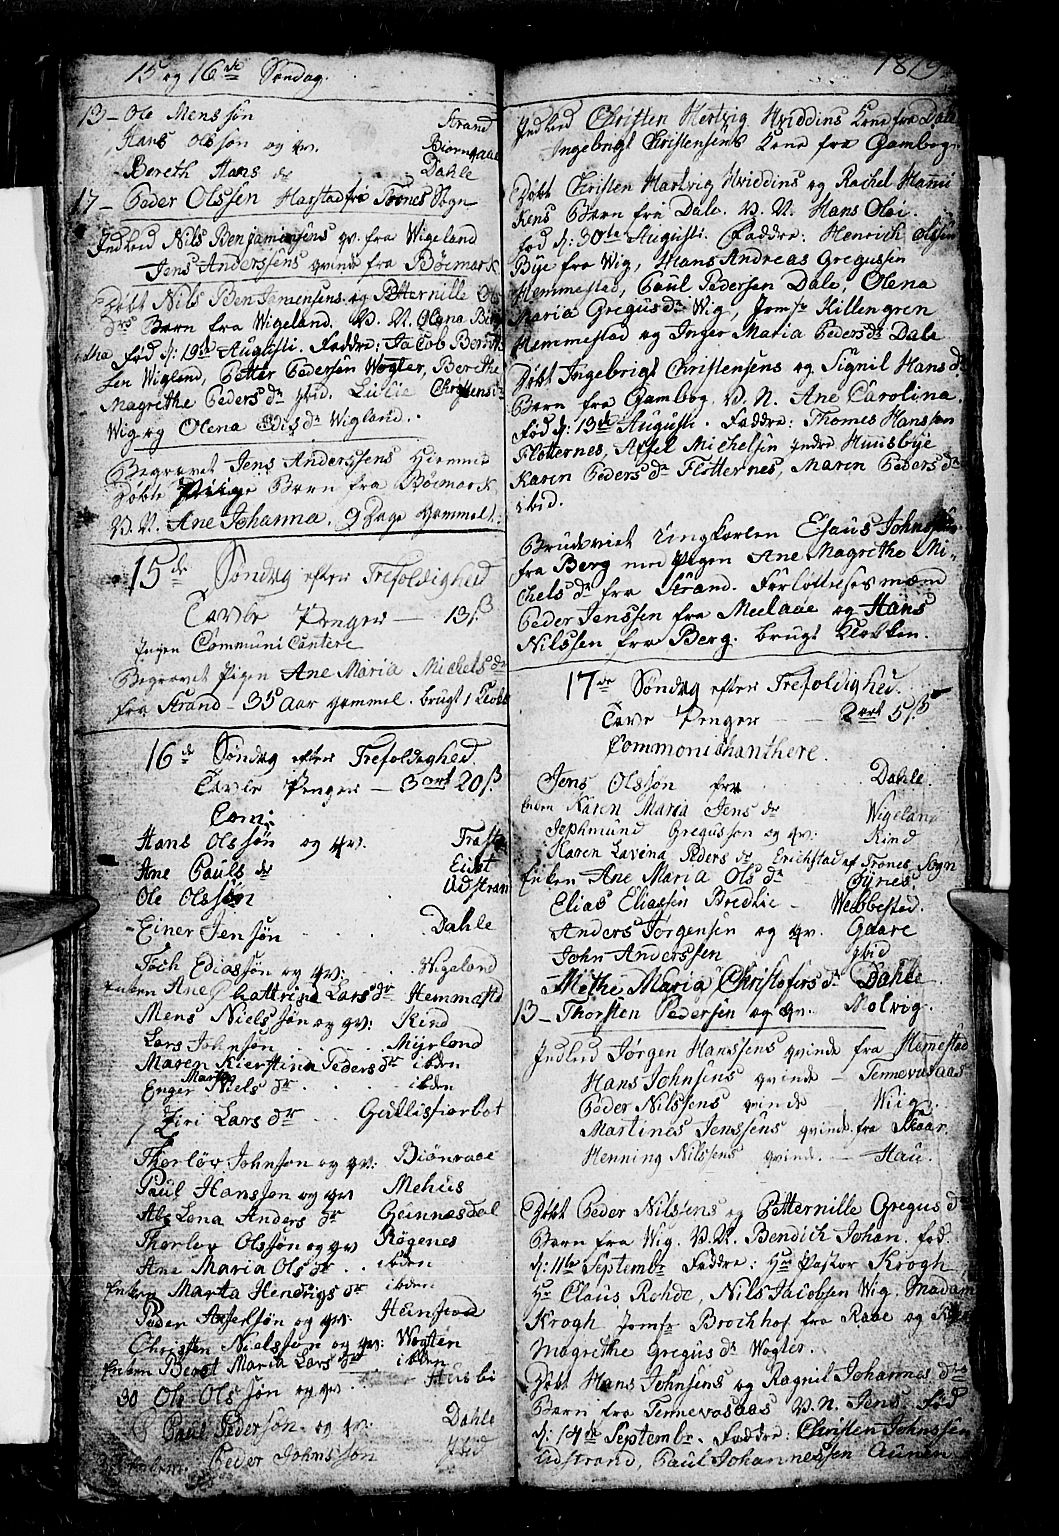 15 og 16de Søndag.
13 — Ole Menssøn Strand
Hans Olssøn og qv. Biørnraae
Bereth Hans dr Dahle
17 — Peder Olssen Harstad fra Trones Sogn
Indled Nils Benjaminsens qv. fra Wigeland
Jens Anderssens qvinde fra Bøemark
Døbt Nils Benjaminsens og Petternille Ols
drs Barn fra Wigeland. V. N. Olena Ber
etha fød d: 19de Augusti. Faddre: Jacob Bendik
sen Wigland, Petter Pedersen Wogter, Berethe
Magrethe Peders dr ibid. Lucie Christens dr
Wig og Olena Edis dr Wigland.
Begravet Jens Anderssens Hiemme
døbte Pige Barn fra Bøemark
V. N. Ane Johanna. 9 Dage gammel.
15de Søndag efter Trefoldighed
Tavle Penger — 13 ß
Ingen Communicantere
Begravet Pigen Ane Maria Michels dr
fra Strand — 35 Aar gammel. brugt 1 Klokk
16de Søndag efter Trefoldighed.
Tavle Penger — 3 ort 20 ß
Com:
Hans Olssøn og qv. Trasta
Ane Pauls dr Eidet
Ole Olssøn Udstran
Einer Jensøn Dahle
Toch Ediassøn og qv: Wigeland
Enken Ane Chattrina Lars dr Hemmestd
Mens Nielssøn og qv: Kind
Lars Johnsøn Myrlond
Maren Kierstina Peders dr ibden
Enger Marta Niels dr ibden
Siri Lars dr Gullisfiorbot
Thorløv Johnsøn og qv: Biønraae
Paul Hanssøn og qv Mehus
Abelona Anders dr Geinnesdal
Thorlov Olssøn og qv Røgenes
Ane Maria Ols dr ibden
Enken Marta Hendrigs dr ibden
Peder Axselsøn og qv: Heinstad
Christen Nielssøn og qv: Wogten
Enken Beret Maria Lars dr ibden
30 Ole Olssøn og qv. Husbi
Paul Pedersøn og qv. Dahle
Peder Johnssøn ibid
1819
Indled Christen Hertvig Hviddins Kone fra Dale
Ingebrigt Christensens Kone fra Gambogn
Døbt Christen Hartvig Hviddins og Rachel Hanni
kens Barn fra Dale. V. N. Hans Olai.
fød d: 30te Augusti. Faddre: Henrich Olssen
Bye fra Wig, Hans Andreas Gregussen
Hemmestad, Paul Pedersen Dale, Olena
Maria Gregus dr Wig, Jomfr Killengren
Hemmestad og Inger Maria Peders dr Dale
Døbt Ingebrigt Christensens og Signil Hans dr
Barn fra Gambog. V. N. Ane Carolina.
fød d: 13de Augusti. Faddre: Thomes Hanssen
Flotternes, Affel Michelsen Indre Huusbye
Karen Peders dr Flotternes, Maren Peders dr
ibid.
Brudeviet Ungkarlen Esaus Johnssen
fra Berg med Pigen Ane Magrethe Mi-
chels dr fra Strand. Forløftelsesmæn
Peder Jenssen fra Meelaae og Hans
Nilssen fra Berg. brugt Klokken.
17de Søndag efter Trefoldighed.
Tavle Penger — 2 ort 5 ß
Commonichanthere.
Jens Olssøn fra Dahle
Enken Karen Maria Jens dr Wigeland
Jephmund Gregussøn og qv: Kind
Karen Lavina Peders dr Erichstad af Trones Sogn
Enken Ane Maria Ols dr Fyrnes
Elias Eliassen Bredlie Webbestad.
Anders Jørgensen og qv. Gaare
John Anderssen ibid
Methe Maria Christofers dr Dahle
13 — Thorsten Pedersen og qv. Molvig.
Indled Jørgen Hanssens qvinde fra Hemestad
Hans Johnsens qvinde — Tennevasaas
Peder Nilssens qvinde — Wiig.
Martines Jenssens qvinde fra Skaar
Henning Nilssens qvinde — Hau.
Døbt Peder Nilssens og Petternille Gregus dr
Barn fra Wig. V. N. Bendich Johan. fød.
d: 11te Septembr. Faddre: Hrr Pastor Krogh
Hr Claus Rohde, Nils Jacobsen Wig, Madam
Krogh Jomfr Brochhof fra Raae og
Magrethe Gregus dr Wogter.
Døbt Hans Johnsens og Ragnil Johannes drs
Barn fra Tennevasaas V. N. Jens. fød
d: 14de Septembr. Faddre: Christen Johnssen
Udstrand, Paul Johannessen Aunen